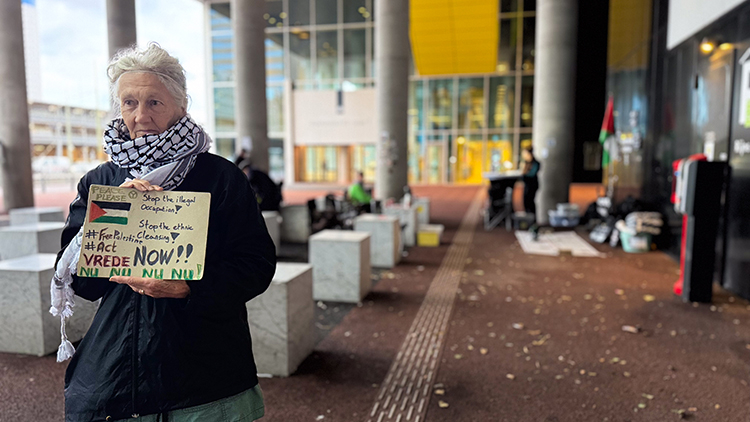 PEACE
PLEASE
Stop the illegal
Occupation!
Stop the ethnic
#FreePalestine Cleansing!
#Act NOW!!
VREDE
NU NU NU NU !!